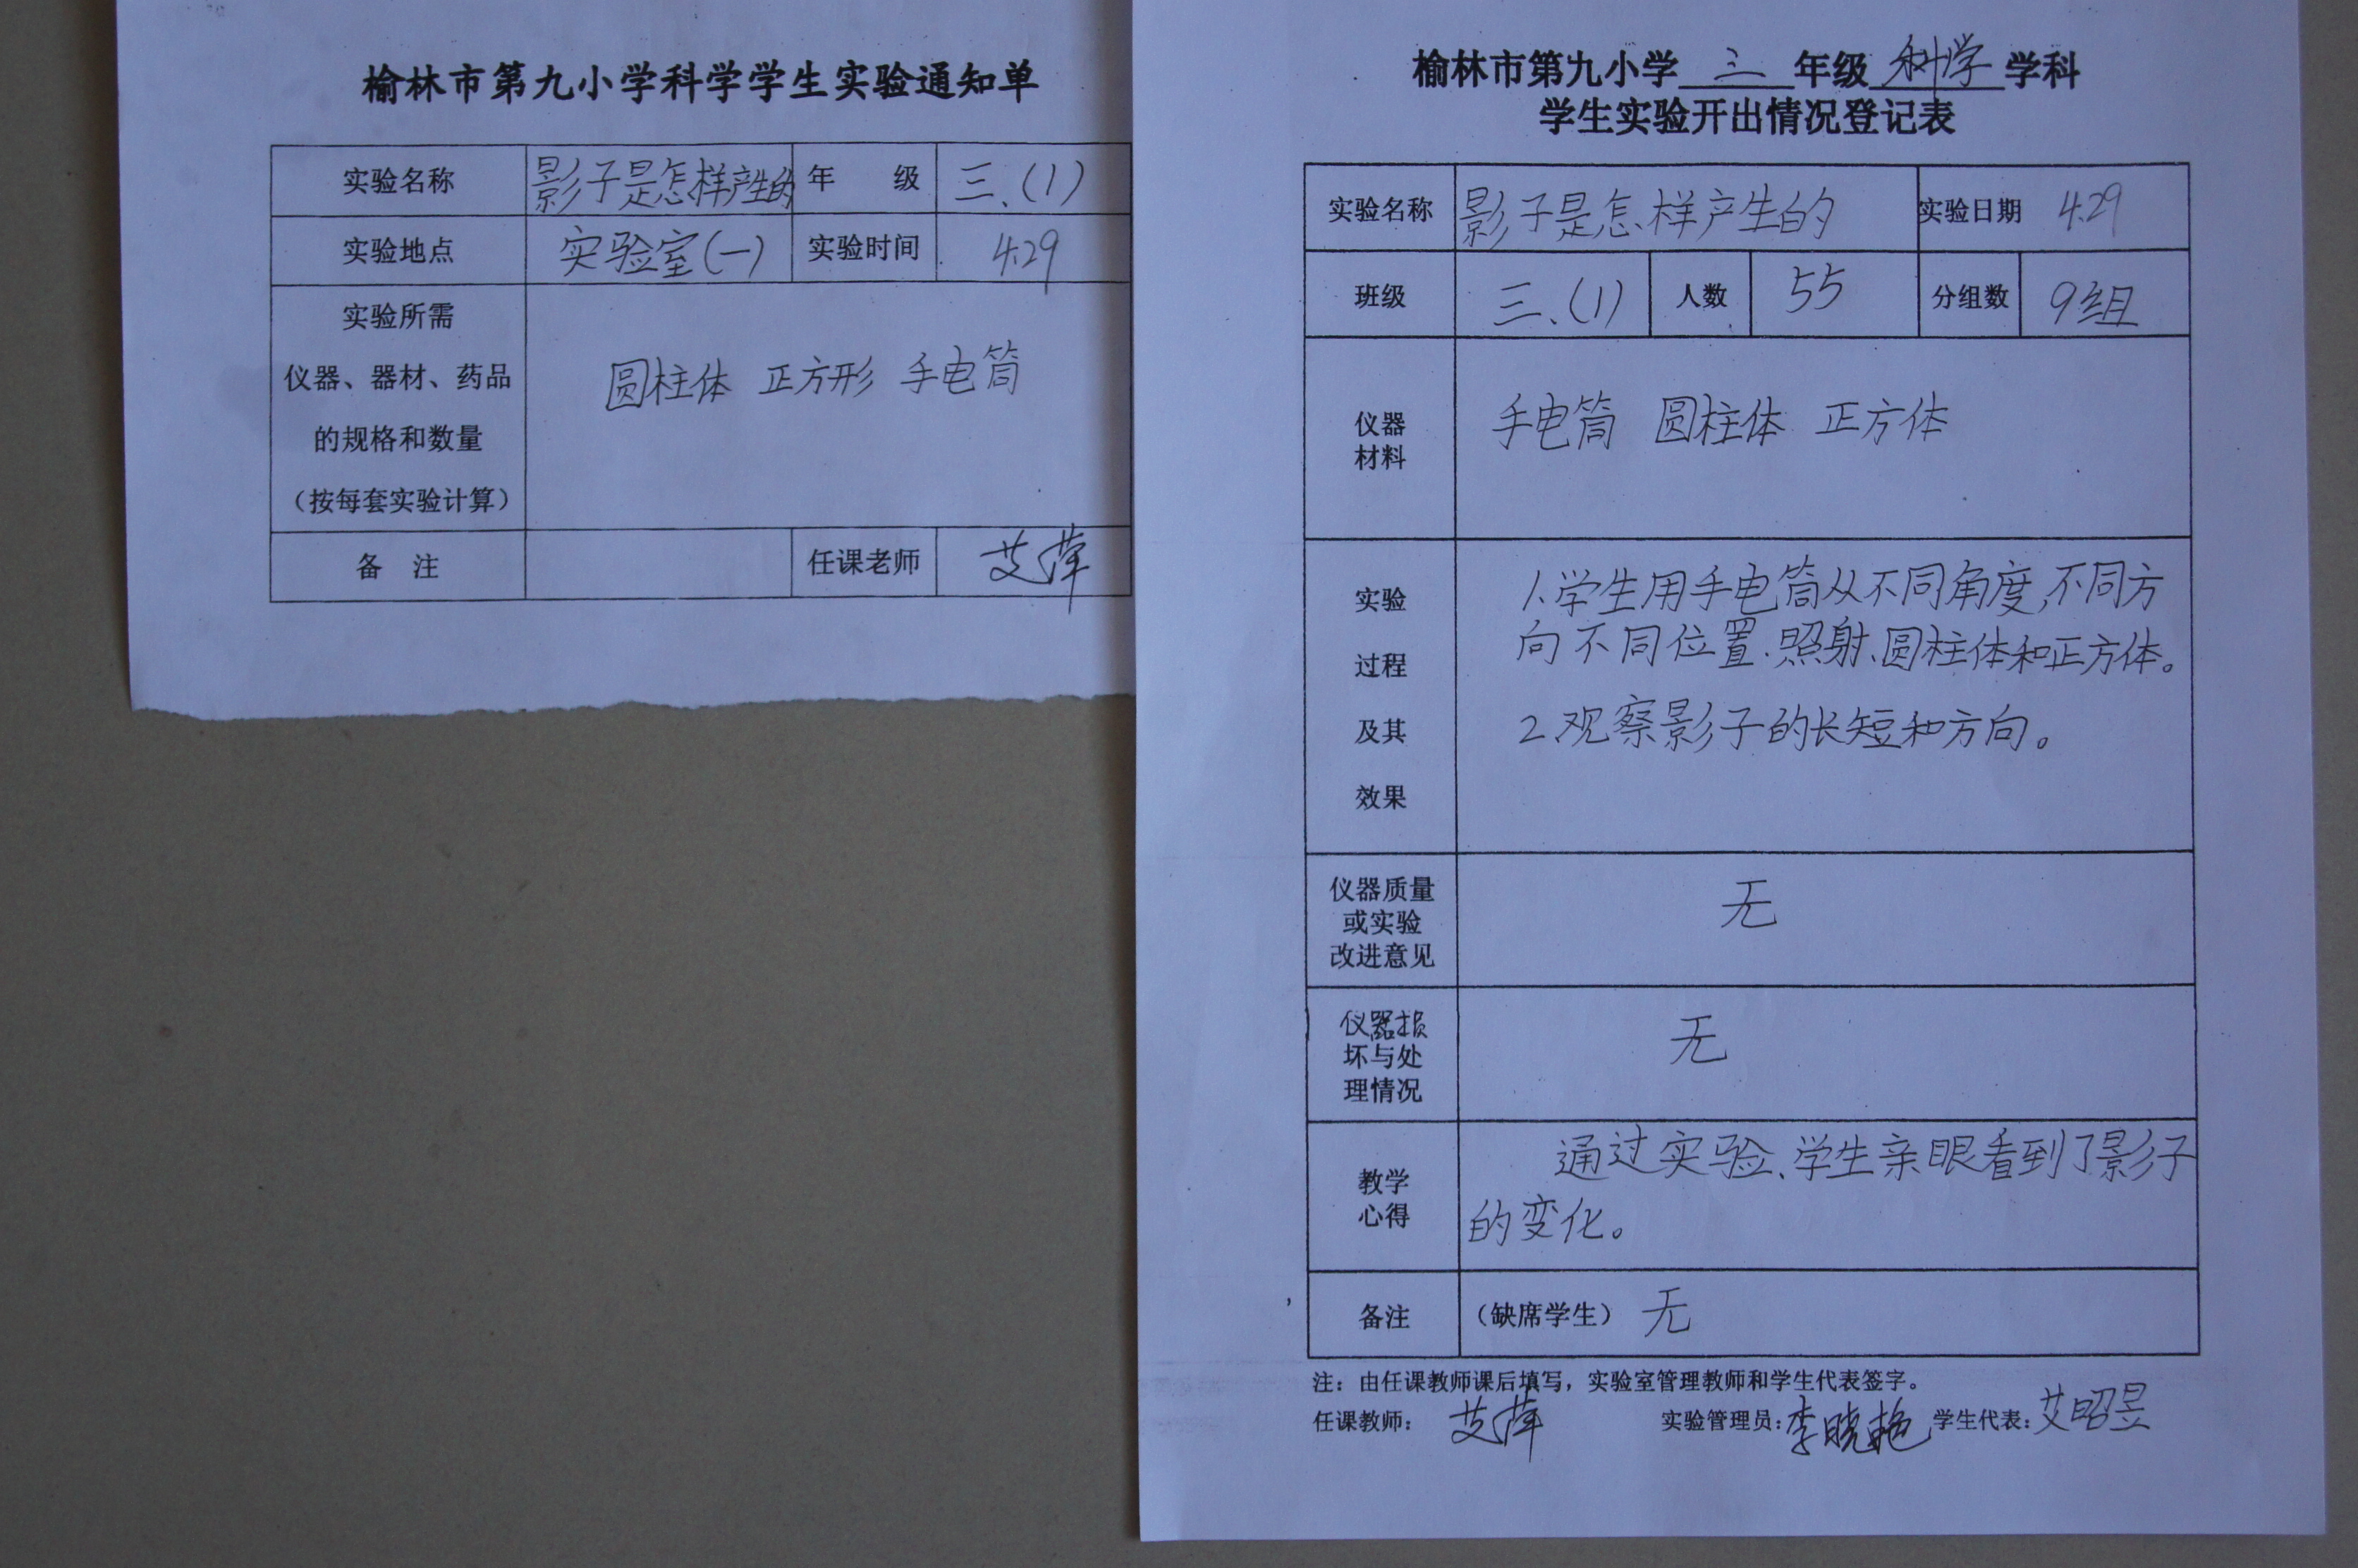 榆林市第九小学科学学生实验通知单
实验名称 影子是怎样产生的 年 级 三.(1)
实验地点 实验室(一) 实验时间 4.29
实验所需
仪器、器材、药品
的规格和数量
（按每套实验计算）
圆柱体 正方形 手电筒
备 注 任课老师 艾萍
榆林市第九小学 三 年级 科学 学科
学生实验开出情况登记表
实验名称 影子是怎样产生的 实验日期 4.29
班级 三.(1) 人数 55 分组数 9组
仪器
材料
手电筒 圆柱体 正方体
实验
过程
及其
效果
1.学生用手电筒从不同角度,不同方
向不同位置.照射.圆柱体和正方体。
2.观察影子的长短和方向。
仪器质量
或实验
改进意见
无
仪器损
坏与处
理情况
无
教学
心得
通过实验、学生亲眼看到了影子
的变化。
备注 （缺席学生） 无
注：由任课教师课后填写，实验室管理教师和学生代表签字。
任课教师： 艾萍 实验管理员: 李晓艳 学生代表: 艾昭昱